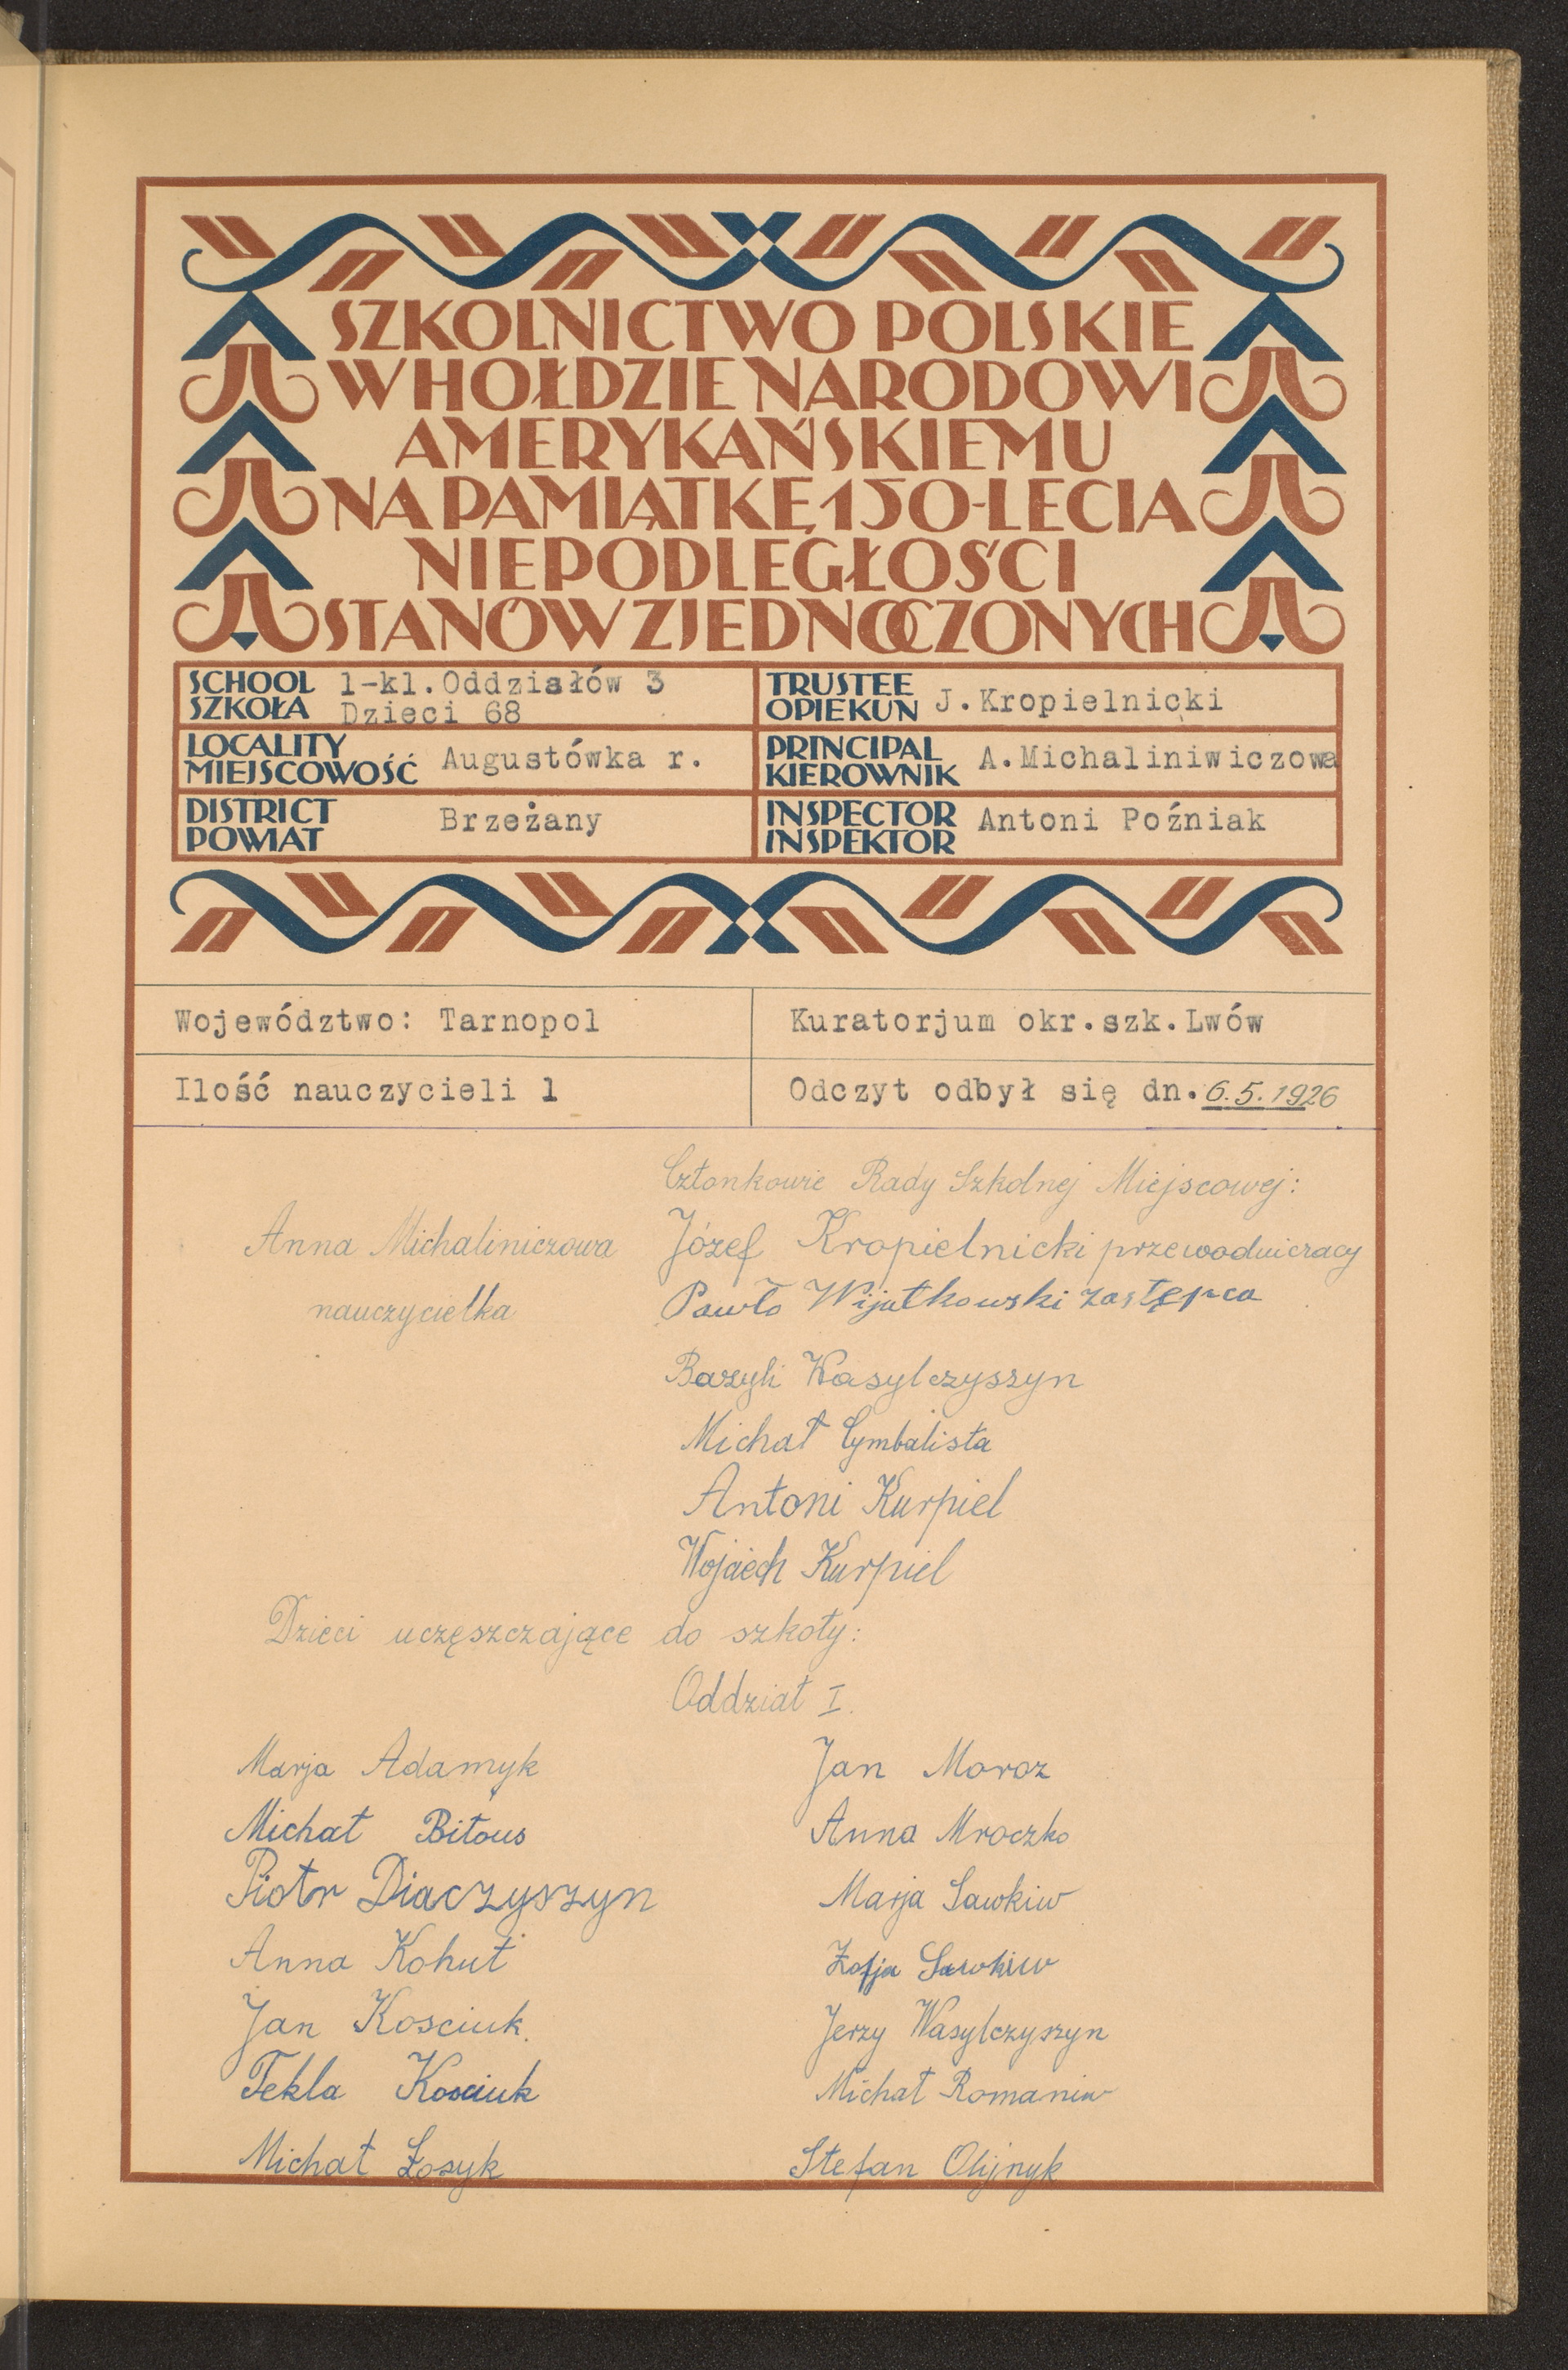 SZKOLNICTWO POLSKIE
W HOŁDZIE NARODOWI
AMERYKAŃSKIEMU
NA PAMIĄTKĘ 150-LECIA
NIEPODLEGŁOŚCI
STANÓW ZJEDNOCZONYCH
SCHOOL
SZKOŁA
1-kl.Oddziałów 3
Dzieci 68
TRUSTEE
OPIEKUN
J.Kropielnicki
LOCALITY
MIEJSCOWOŚĆ
Augustówka r.
PRINCIPAL
KIEROWNIK
A.Michaliniwiczowa
DISTRICT
POWIAT
Brzeżany
INSPECTOR
INSPEKTOR
Antoni Poźniak
Województwo: Tarnopol
Kuratorjum okr.szk.Lwów
Ilość nauczycieli 1
Odczyt odbył się dn. 6.5.1926
Członkowie Rady Szkolnej Miejscowej:
Anna Michaliniczowa
nauczycielka
Józef Kropielnicki przewodniczacy
Pawło Wijatkowski zastępca
Bazyli Wasylczyszyn
Michał Cymbalista
Antoni Kurpiel
Wojciech Kurpiel
Dzieci uczęszczające do szkoły:
Oddział I.
Marja Adamyk
Michał Bitous
Piotr Diaczyszyn
Anna Kohut
Jan Kosciuk.
Tekla Kosciuk
Michał Łosyk
Jan Moroz
Anna Mroczko
Marja Sawkiw
Zofja Sawkiw
Jerzy Wasylczyszyn
Michał Romaniw
Stefan Olijnyk